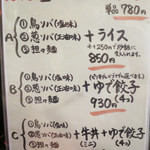 単品 780円
A
① 鳥ソバ(塩味)
② 葱ソバ(正油味)
③ 担々麺
+ライス
+250円で炒飯に
850円
B
① 鳥ソバ(塩味)
② 葱ソバ(正油味)
③ 担々麺
+ゆで餃子
930円(4コ)
C
① 鳥ソバ(塩味)
② 葱ソバ(正油味)
③ 担々麺
+牛丼+ゆで餃子
(ミニ) (4コ)